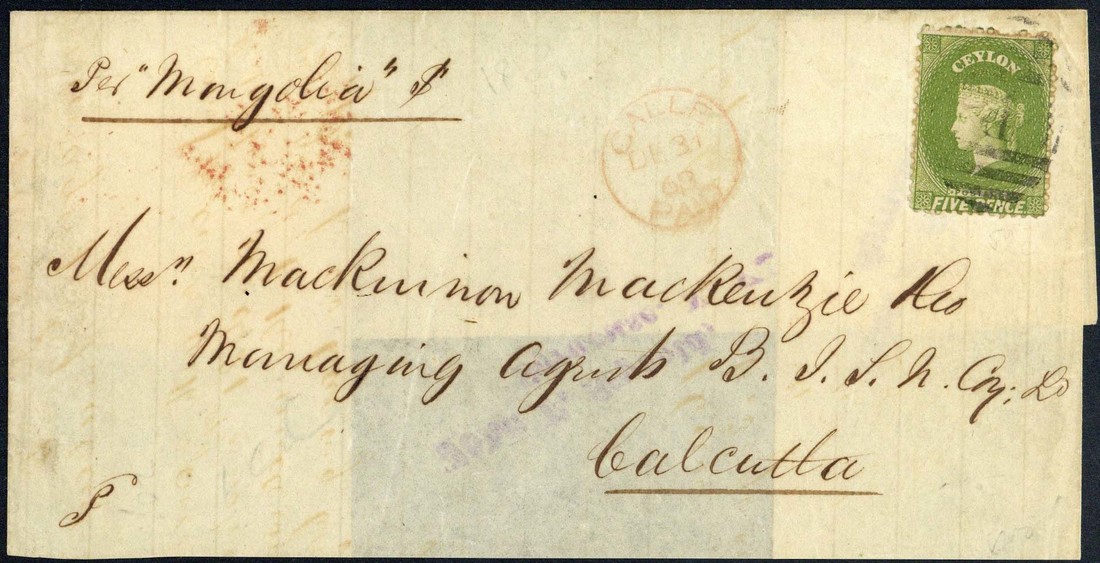 Per "Mongolia"
CEYLON
GALLE
DE 31
68
PAID
FIVE PENCE.
Messrs. Mackinnon Mackenzie & Co
Managing Agents B. I. S. N. Coy; Ld
Calcutta